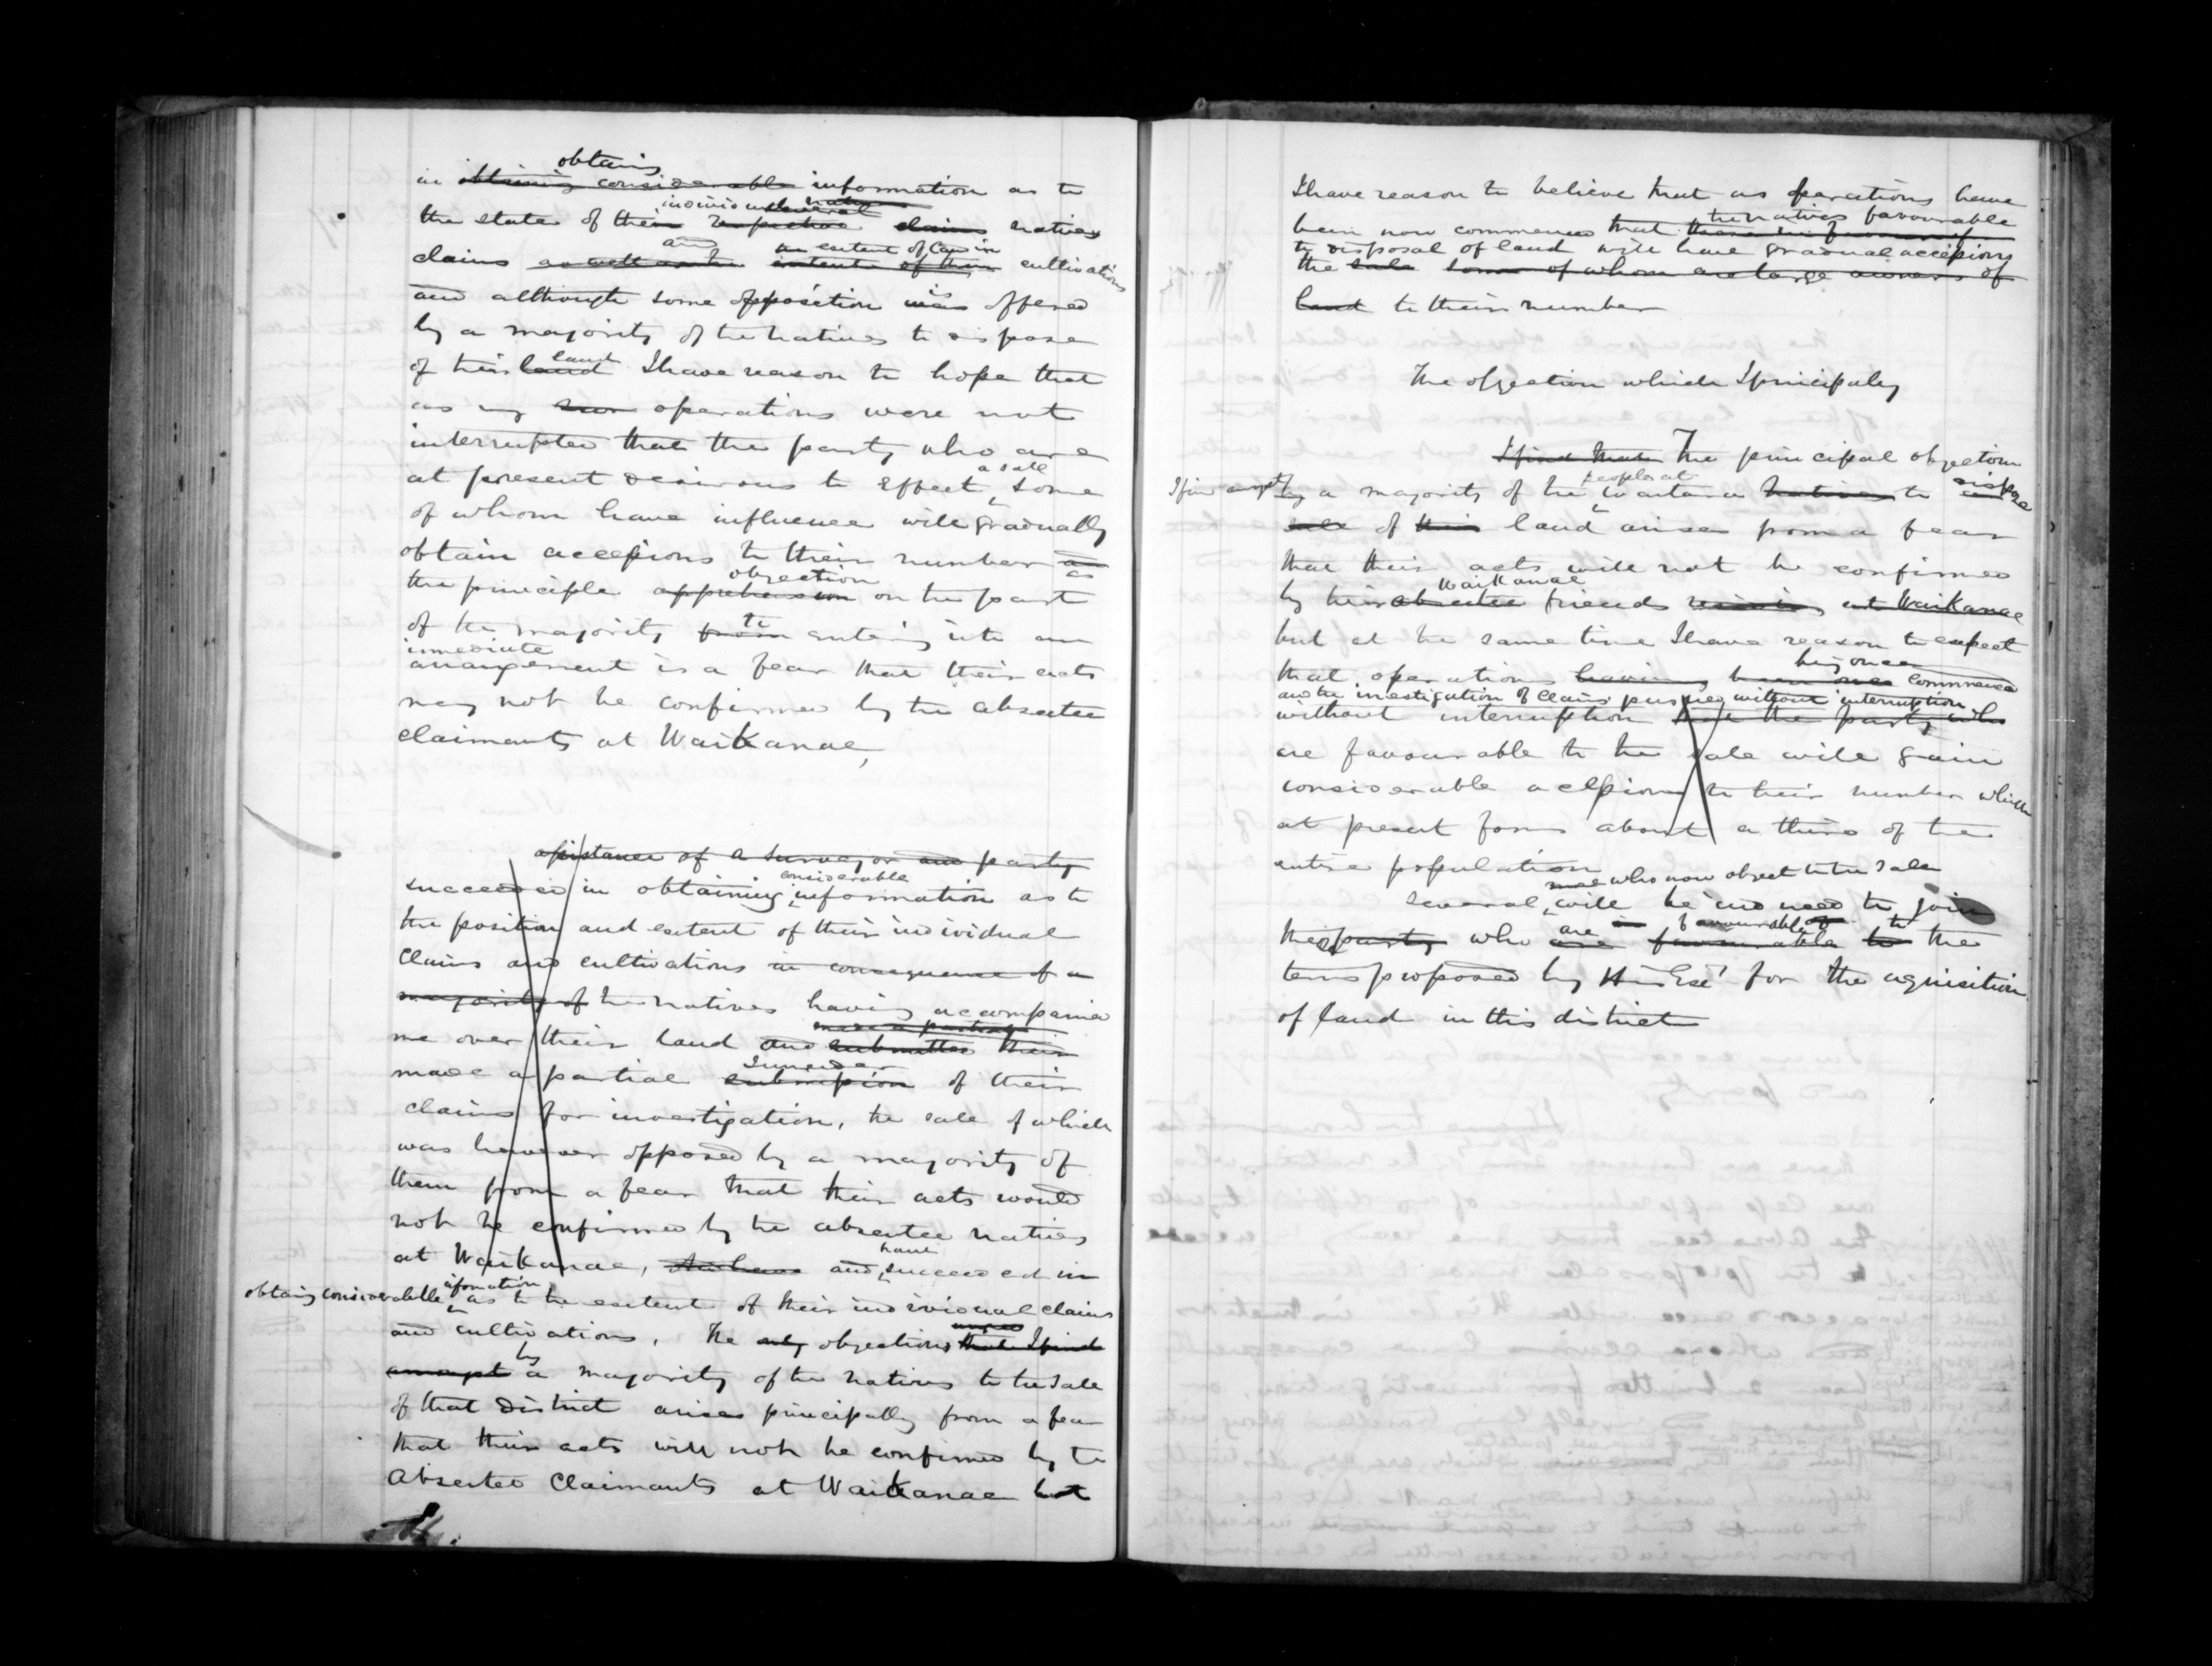 obtaining
in obtaining considerable information as to
individual several nature
the state of their respective claims natives
and an extent of land in
claims as well as the extent of their cultivations
and although some opposition was is offered
by a majority of the natives to dispose
land
of their land I have reason to hope that
as my operations were not
interrupted that the party who are
a sale
at present desirous to effect some
of whom have influence will gradually
obtain accessions to their number as
as
objection
the principle apprehension on the part
to
of the majority from entering into an
immediate
arrangement is a fear that their acts
may not be confirmed by the absentee
claimants at Waikanae,
assistance of a Surveyor and party
considerable
succeeded in obtaining information as to
the position and extent of their individual
Claims and cultivations in consequence of a
majority of the natives having accompanied
made a partial
me over their land and submitted their
Surrender
made a partial submission of their
claims for investigation, the sale of which
was however opposed by a majority of
them from a fear that their acts would
not be confirmed by the absentee natives
have
at Waikanae, and succeeded in
information
obtaing considerable as to the extent of their individual claims
urged
and cultivations. The only objections that I find
by
amongst a majority of the natives to the Sale
of that District arises principally from a fear
that their acts will not be confirmed by the
Absentee Claimants at Waikanae but
I have reason to believe that as operations have
the natives favourable
been now commenced that those in favour of
to disposal of land will have gradual accessions
the sale some of whom are large owners of
land to their number
The objection which I principaly
I find that The principal objection
people at dispose
I find amongst by a majority of the Waitara natives to
sale of this land arises from a fear
that their acts will not be confirmed
Waikanae
by their absentee friends residing at Waikanae
but at the same time I have reason to expect
being once
that operations having been once commenced
and the investigation of claims pursued without interruption
without interruption that the party who
are favourable to the sale will gain
considerable accessions to their number which
at present forms about a third of the
entire population
who now object to the Sale
Several will be induced to join
are in favourable to
the party who are favourable to the
terms proposed by His Exc.y for the aquisition
of land in this district